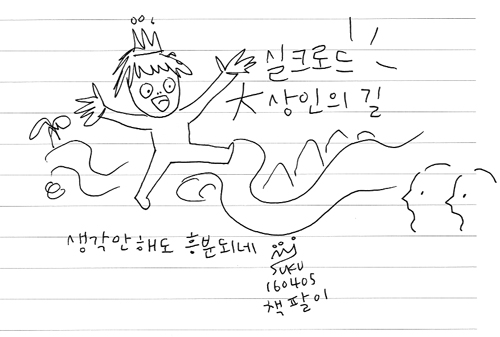 실크로드
大상인의 길
생각안해도 흥분되네
SUKU
160405
책팔이